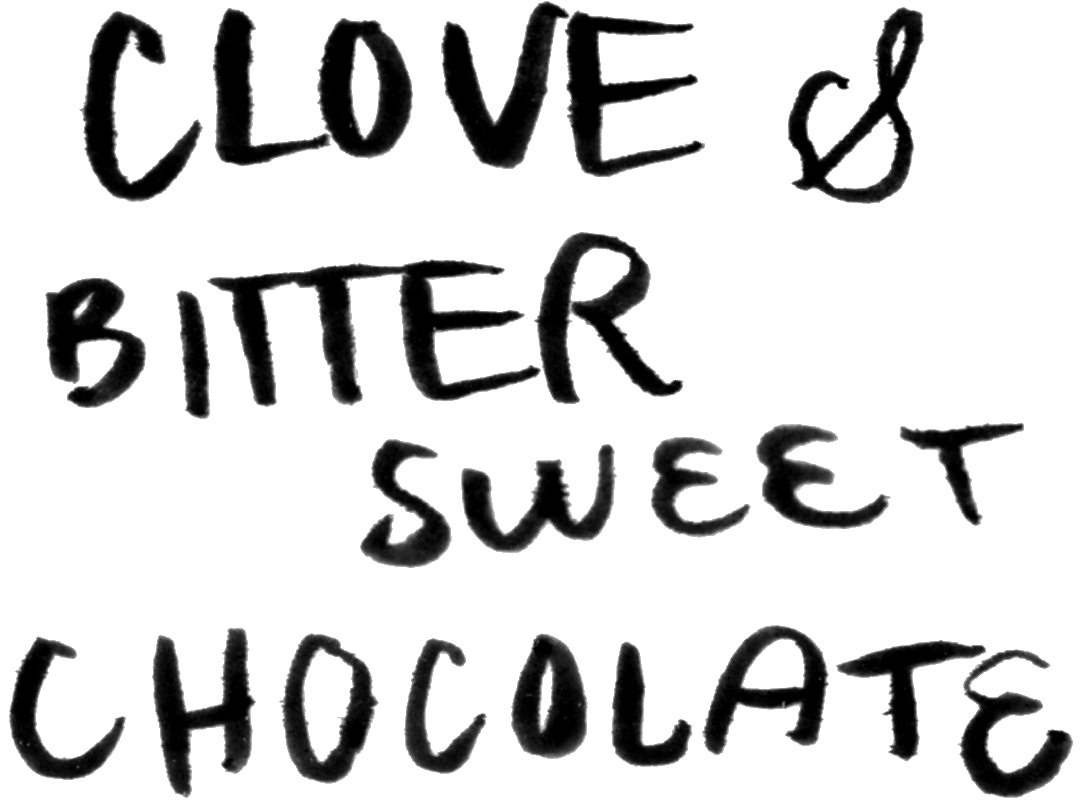 CLOVE &
BITTER
SWEET
CHOCOLATE